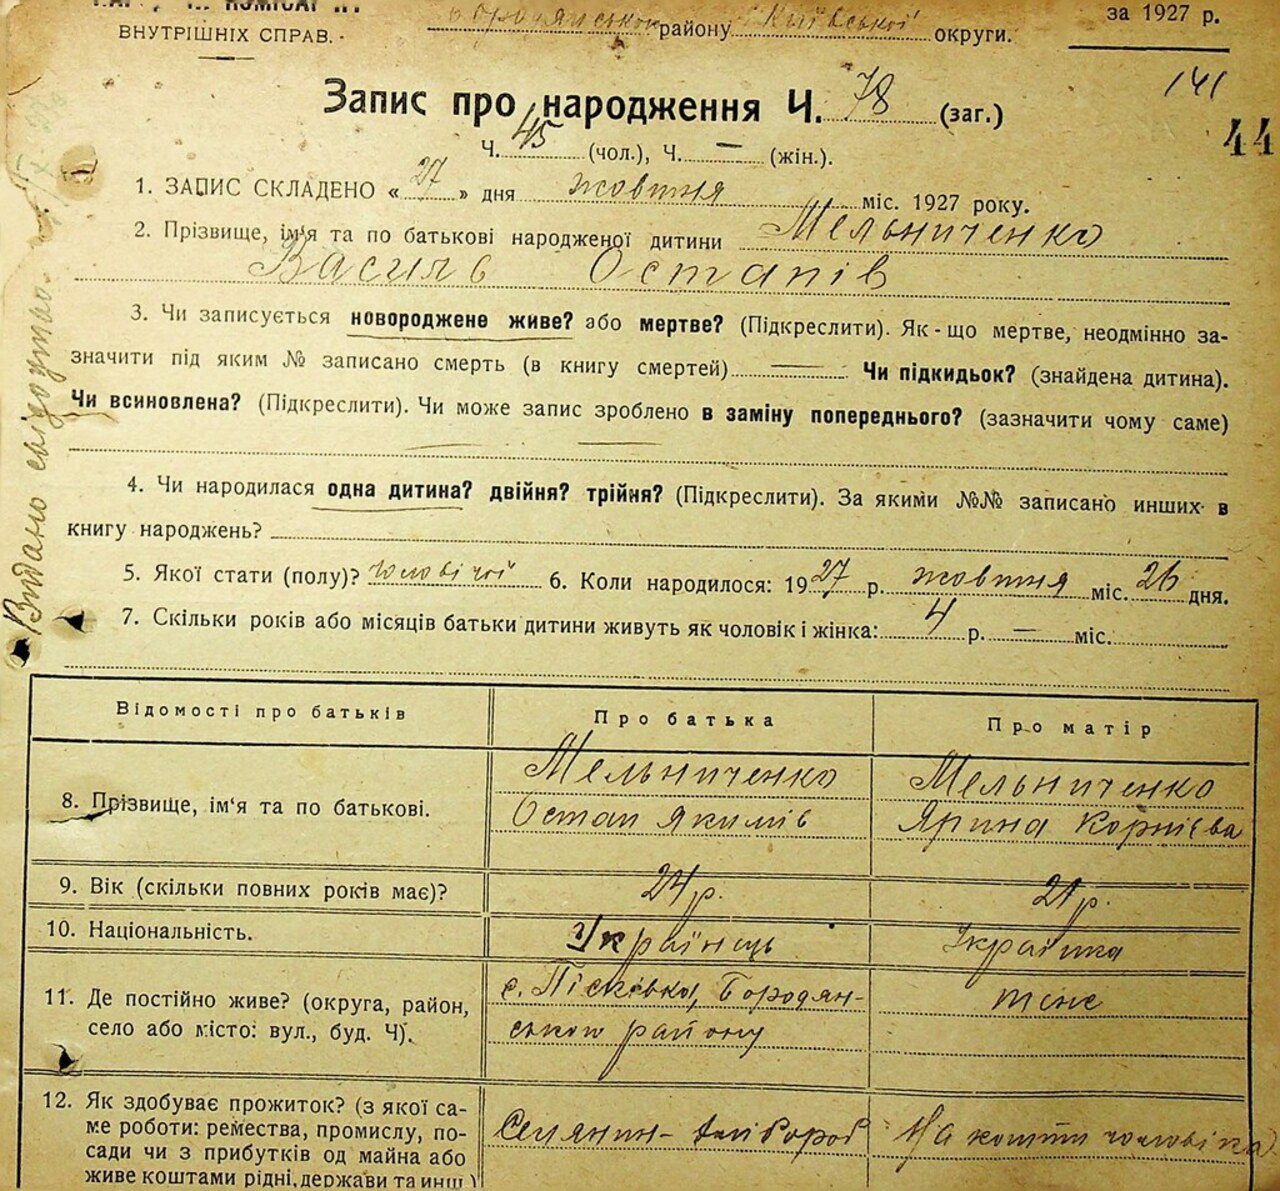 ВНУТРІШНІХ СПРАВ.
Бородянського району Київської округи.
за 1927 р.
141
44
Запис про народження Ч. 78 (заг.)
Ч. 45 (чол.), Ч. — (жін.).
1. ЗАПИС СКЛАДЕНО « 27 » дня жовтня міс. 1927 року.
2. Прізвище, ім'я та по батькові народженої дитини Мельниченко
Василь Остапів
3. Чи записується новороджене живе? або мертве? (Підкреслити). Як-що мертве, неодмінно за-
значити під яким № записано смерть (в книгу смертей) — Чи підкидьок? (знайдена дитина).
Чи всиновлена? (Підкреслити). Чи може запис зроблено в заміну попереднього? (зазначити чому саме)
4. Чи народилася одна дитина? двійня? трійня? (Підкреслити). За якими №№ записано инших в
книгу народжень?
5. Якої стати (полу)? чоловічої 6. Коли народилося: 1927 р. жовтня міс. 26 дня.
7. Скільки років або місяців батьки дитини живуть як чоловік і жінка: 4 р. — міс.
Видано свідоцтво.
Відомості про батьків Про батька Про матір
8. Прізвище, ім'я та по батькові. Мельниченко Мельниченко
Остап Якимів Ярина Корнієва
9. Вік (скільки повних років має)? 24 р. 21 р.
10. Національність. Українець Українка
11. Де постійно живе? (округа, район, с. Пісківка, Бородян- теж
село або місто: вул., буд. Ч). ського району
12. Як здобуває прожиток? (з якої са-
ме роботи: ремества, промислу, по- Селянин- хлібороб На кошти чоловіка
сади чи з прибутків од майна або
живе коштами рідні, держави та инш)